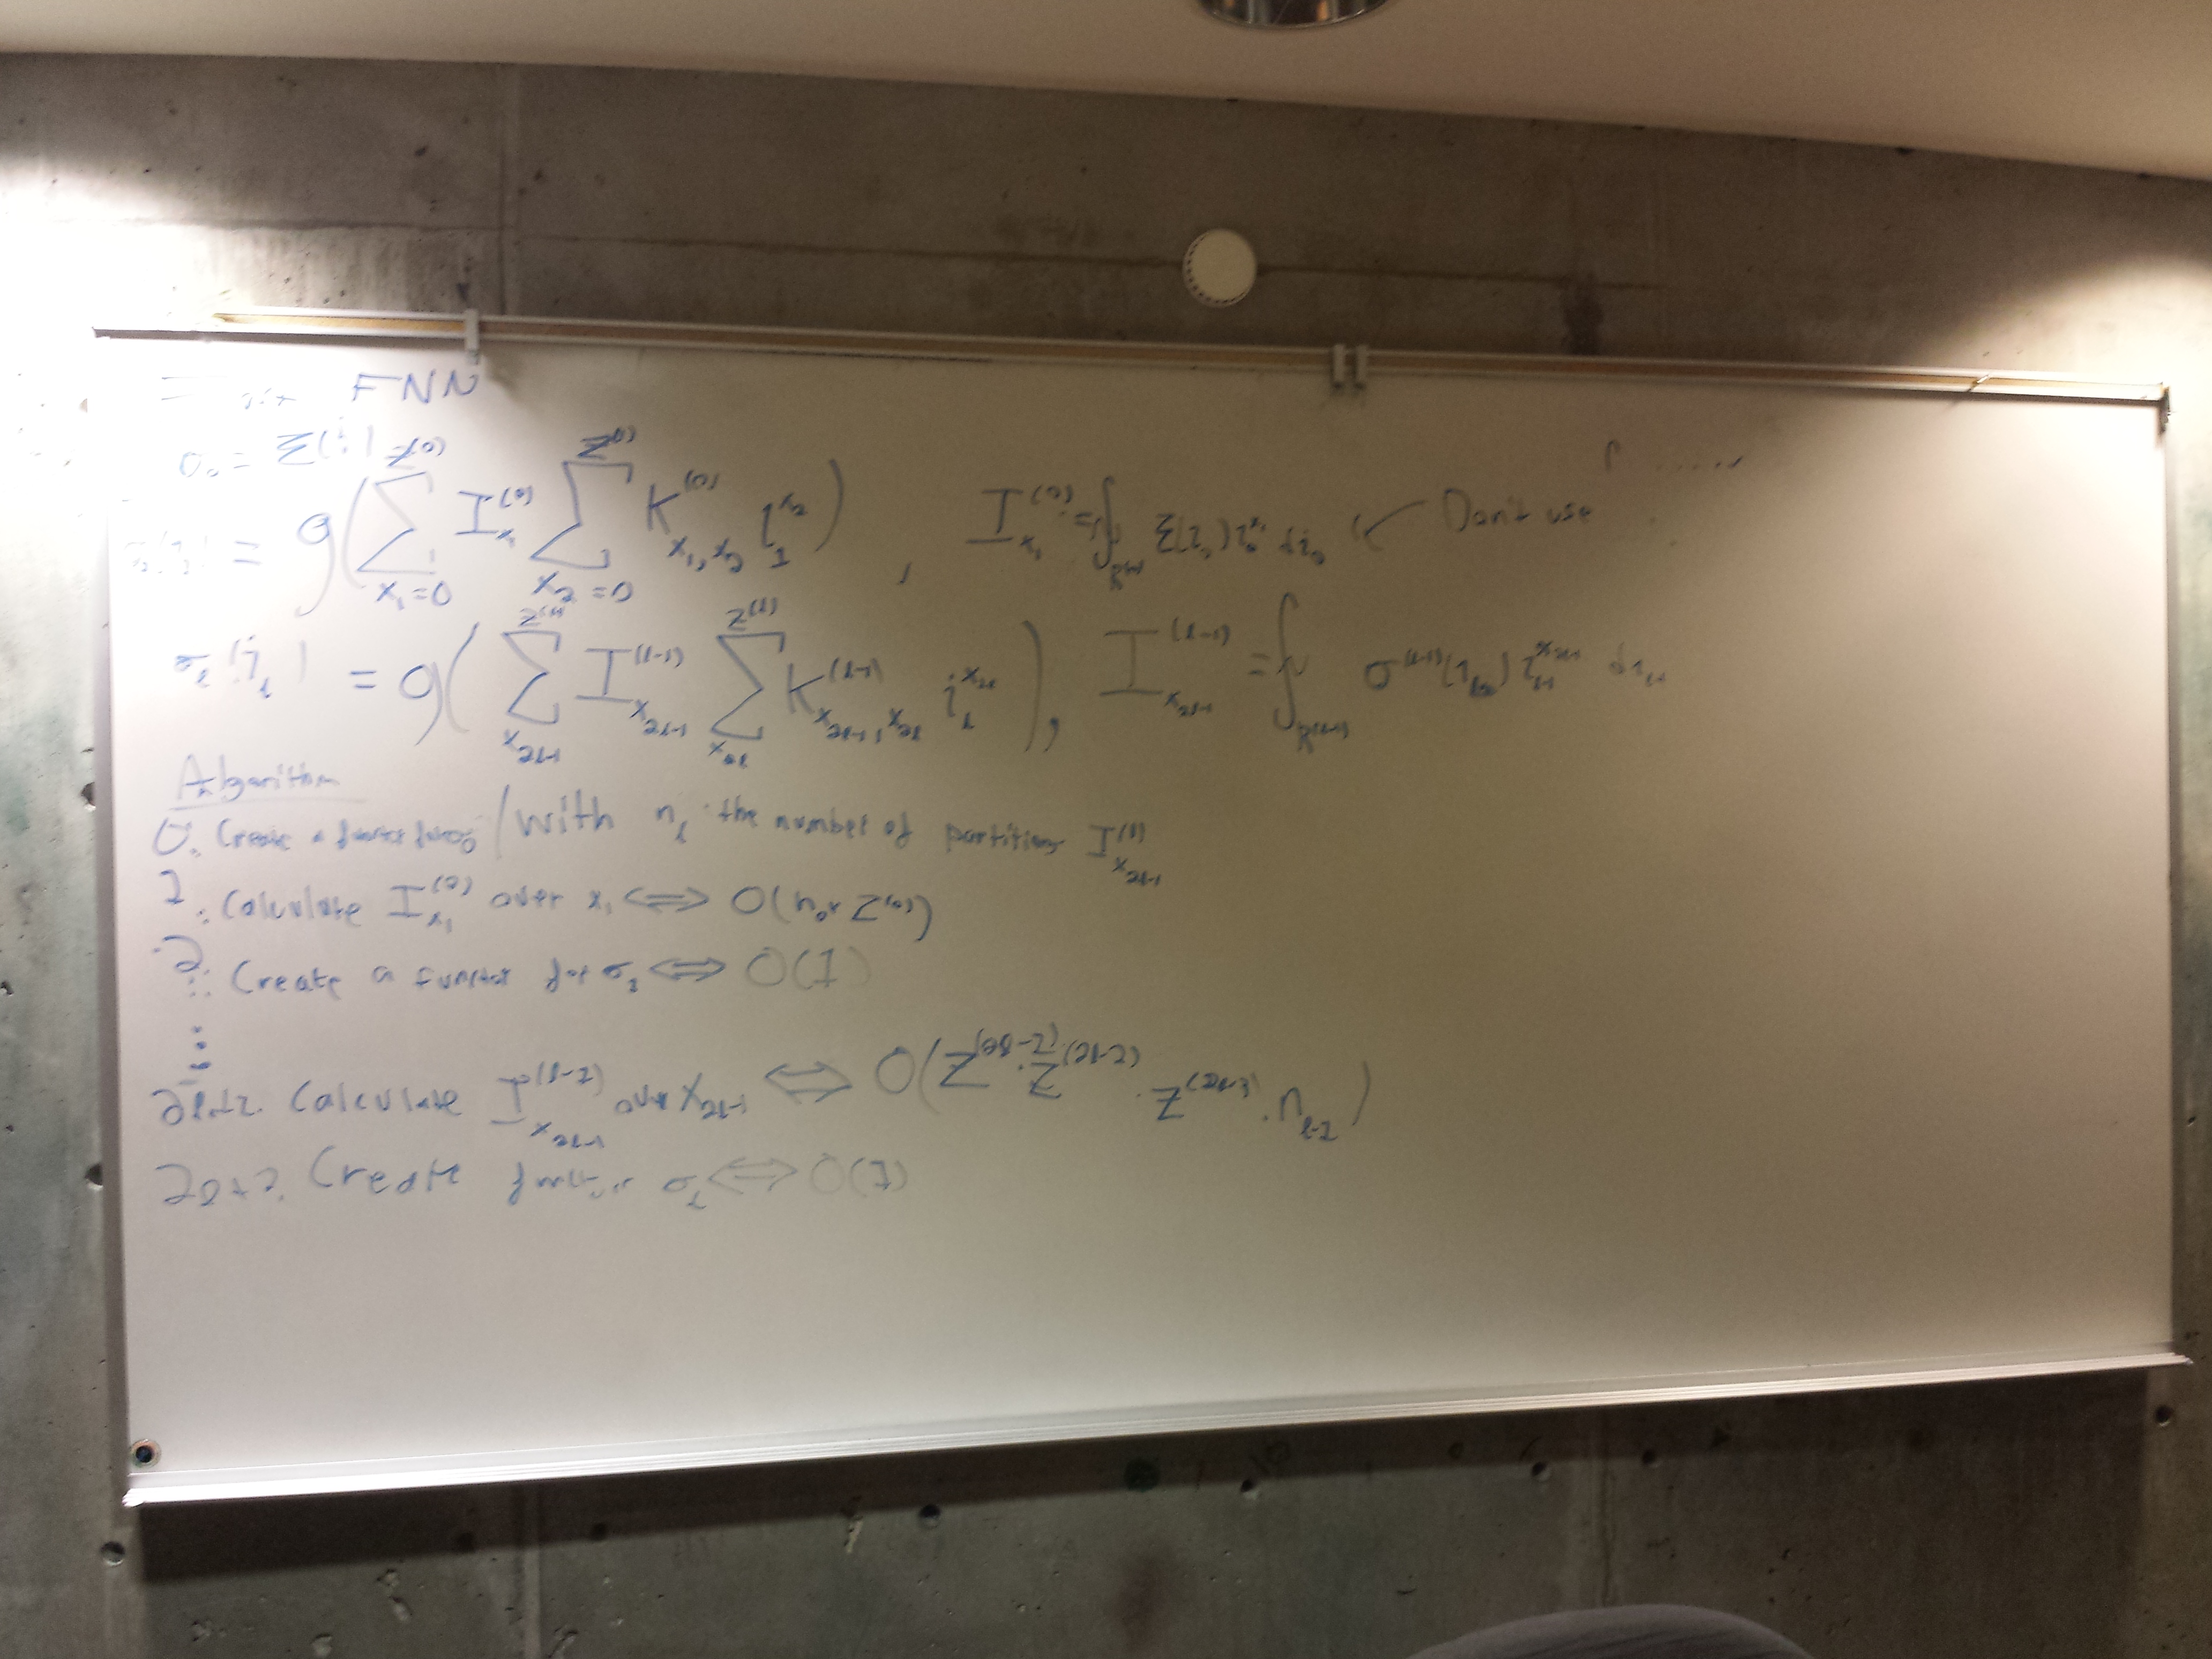 FNN
σ₀ = Σ(j)
= g( Σ_{x₁=0}^{Z^{(0)}} I_{x₁}^{(0)} Σ_{x₂=0}^{Z^{(1)}} K_{x₁,x₂}^{(0)} j_1^{x₂} ) , I_{x₁}^{(0)} = ∫_{R^{(0)}} Σ(j₀) j₀^{x₁} dj₀ ← Don't use
σ_l(j_l) = g( Σ_{x_{2l-1}}^{Z^{(l-1)}} I_{x_{2l-1}}^{(l-1)} Σ_{x_{2l}}^{Z^{(l)}} K_{x_{2l-1},x_{2l}}^{(l-1)} j_l^{x_{2l}} ) , I_{x_{2l-1}}^{(l-1)} = ∫_{R^{(l-1)}} σ^{(l-1)}(j_{l-1}) j_{l-1}^{x_{2l-1}} dj_{l-1}
Algorithm
0. Create a functor for σ₀ / with n_l the number of partitions I_{x_{2l-1}}^{(l)}
1. Calculate I_{x₁}^{(0)} over x₁ ⟺ O(n₀ · Z^{(0)})
2. Create a functor for σ₁ ⟺ O(1)
⋮
Calculate I_{x_{2l-1}}^{(l-1)} over x_{2l-1} ⟺ O(Z^{(2l-1)} · Z^{(2l-2)} · Z^{(2l-3)} · n_{l-1})
2l+2. Create functor σ_l ⟺ O(1)